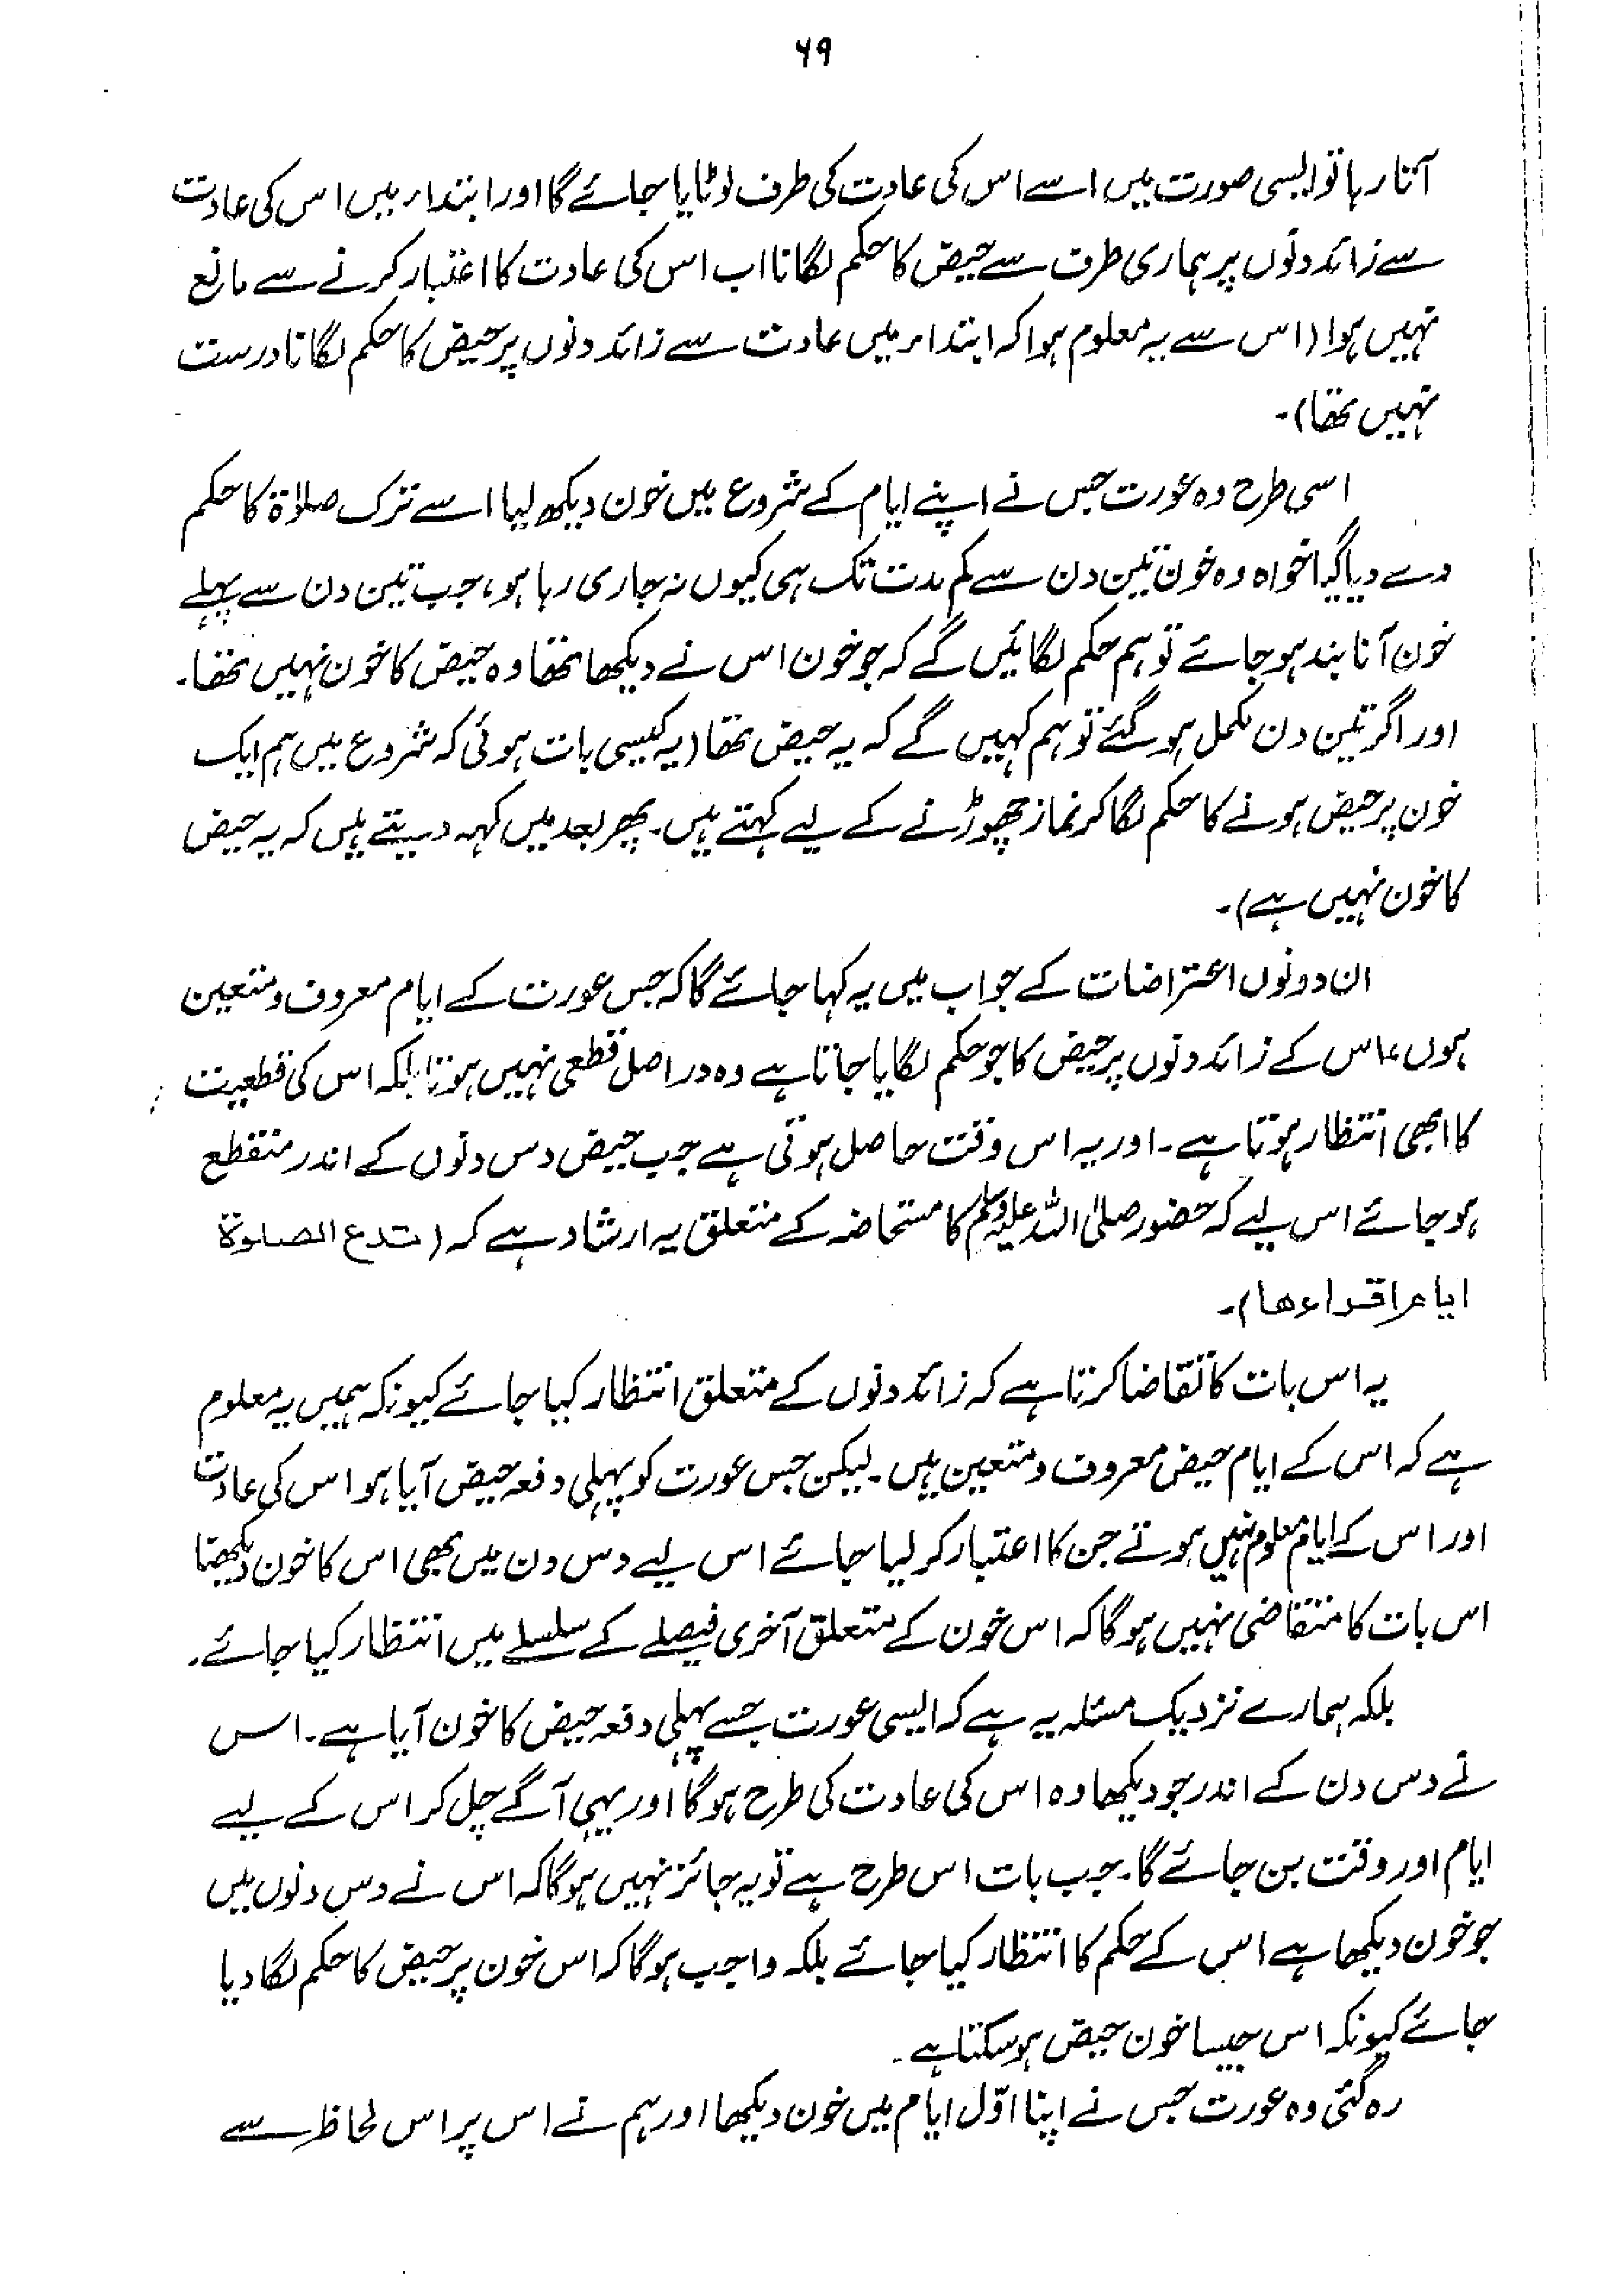 ۶۹
آتا رہا تو ایسی صورت میں اسے اس کی عادت کی طرف لوٹایا جائے گا اور ابتداء میں اس کی عادت
سے زائد دنوں پر ہماری طرف سے حیض کا حکم لگانا اب اس کی عادت کا اعتبار کرنے سے مانع
نہیں ہوا (اس سے یہ معلوم ہوا کہ ابتداء میں عادت سے زائد دنوں پر حیض کا حکم لگانا درست
نہیں تھا)۔
اسی طرح وہ عورت جس نے اپنے ایام کے شروع میں خون دیکھ لیا اسے ترک صلاۃ کا حکم
دے دیا گیا خواہ وہ خون تین دن سے کم مدت تک ہی کیوں نہ جاری رہا ہو، جب تین دن سے پہلے
خون آنا بند ہو جائے تو ہم حکم لگائیں گے کہ جو خون اس نے دیکھا تھا وہ حیض کا خون نہیں تھا۔
اور اگر تین دن مکمل ہو گئے تو ہم کہیں گے کہ یہ حیض تھا (یہ کیسی بات ہوئی کہ شروع میں ہم ایک
خون پر حیض ہونے کا حکم لگا کر نماز چھوڑنے کے لیے کہتے ہیں۔ پھر بعد میں کہہ دیتے ہیں کہ یہ حیض
کا خون نہیں ہے)۔
ان دونوں اعتراضات کے جواب میں یہ کہا جائے گا کہ جس عورت کے ایام معروف و متعین
ہوں، اس کے زائد دنوں پر حیض کا جو حکم لگایا جاتا ہے وہ دراصل قطعی نہیں ہوتا بلکہ اس کی قطعیت
کا ابھی انتظار ہوتا ہے۔ اور یہ اس وقت حاصل ہوتی ہے جب حیض دس دنوں کے اندر منقطع
ہو جائے اس لیے کہ حضور صلی اللہ علیہ وسلم کا مستحاضہ کے متعلق یہ ارشاد ہے کہ (تدع الصلوة
ایام اقراءها)۔
یہ اس بات کا تقاضا کرتا ہے کہ زائد دنوں کے متعلق انتظار کیا جائے کیونکہ ہمیں یہ معلوم
ہے کہ اس کے ایام حیض معروف و متعین ہیں۔ لیکن جس عورت کو پہلی دفعہ حیض آیا ہو اس کی عادت
اور اس کے ایام معلوم نہیں ہوتے جن کا اعتبار کر لیا جائے اس لیے دس دن میں بھی اس کا خون دیکھنا
اس بات کا متقاضی نہیں ہوگا کہ اس خون کے متعلق آخری فیصلے کے سلسلے میں انتظار کیا جائے۔
بلکہ ہمارے نزدیک مسئلہ یہ ہے کہ ایسی عورت جسے پہلی دفعہ حیض کا خون آیا ہے۔ اس
نے دس دن کے اندر جو دیکھا وہ اس کی عادت کی طرح ہوگا اور یہی آگے چل کر اس کے لیے
ایام اور وقت بن جائے گا۔ جب بات اس طرح ہے تو یہ جائز نہیں ہوگا کہ اس نے دس دنوں میں
جو خون دیکھا ہے اس کے حکم کا انتظار کیا جائے بلکہ واجب ہوگا کہ اس خون پر حیض کا حکم لگا دیا
جائے کیونکہ اس جیسا خون حیض ہو سکتا ہے۔
رہ گئی وہ عورت جس نے اپنا اوّل ایام میں خون دیکھا اور ہم نے اس پر اس لحاظ سے